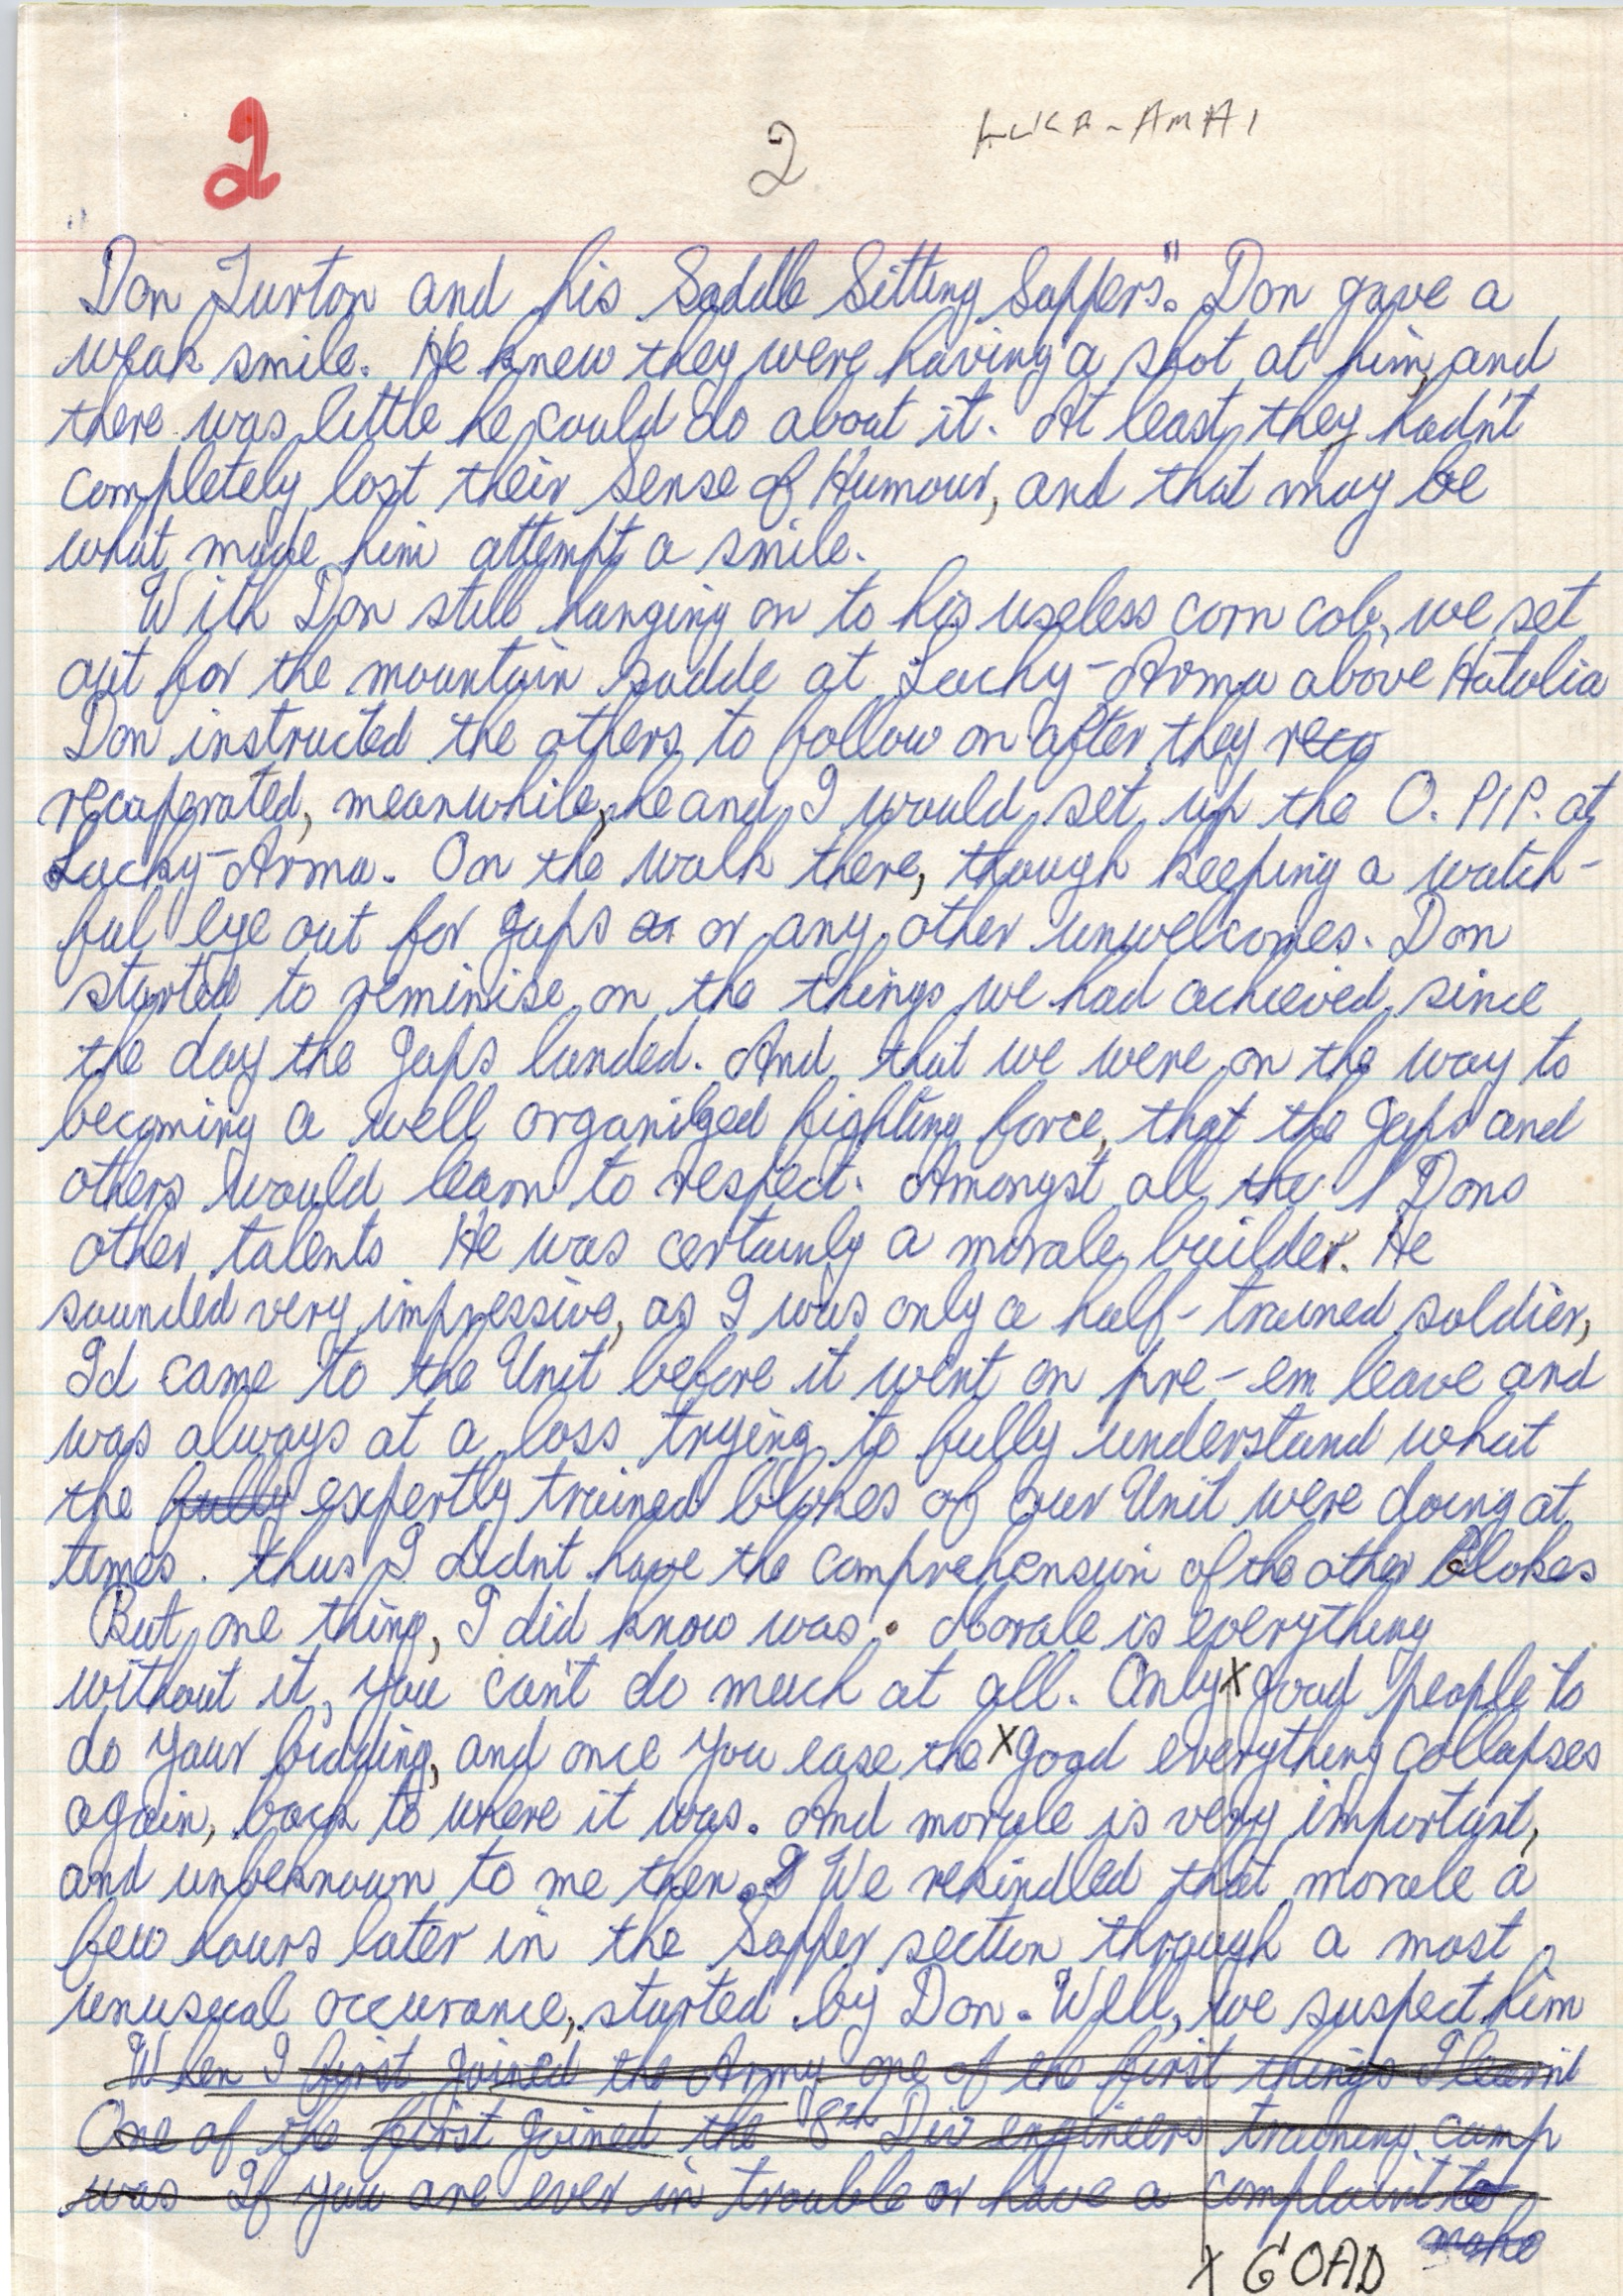 2 2 LUKA-AMAI
Don Turton and his Saddle Sitting Sappers". Don gave a
weak smile. He knew they were having a shot at him, and
there was little he could do about it. At least, they hadn't
completely lost their Sense of Humour, and that may be
what made him attempt a smile.
With Don still hanging on to his useless corn cob, we set
out for the mountain sadde at Lachy-Arma above Hatolia
Don instructed the others to follow on after they reco
recuperated, meanwhile, he and I would set up the O. PIP. at
Lachy-Arma. On the walk there, though keeping a watch-
ful eye out for Japs or or any other unwelcomes. Don
started to reminise on the things we had achieved since
the day the Japs landed. And that we were on the way to
becoming a well organized fighting force, that the Japs and
others would learn to respect. Amongst all the Dons
other talents He was certainly a morale builder. He
sounded very impressive, as I was only a half-trained soldier,
I'd came to the Unit before it went on pre-em leave and
was always at a loss trying to fully understand what
the fully expertly trained blokes of our Unit were doing at
times. thus I didnt have the comprehension of the other Blokes
But one thing, I did know was. Morale is everything
without it, you can't do much at all. Only X goad people to
do your bidding, and once you ease the X goad everything collapses
again, back to where it was. And morale is very important,
and unbeknown to me then. I We rekindled that morale a
few hours later in the Sapper section through a most
unusual occurance, started by Don. Well, we suspect him
When I first joined the Army one of the first things I learnt
One of the first joined the 8th Div engineers training camp
was If you are ever in trouble or have a complaint to
make
X GOAD